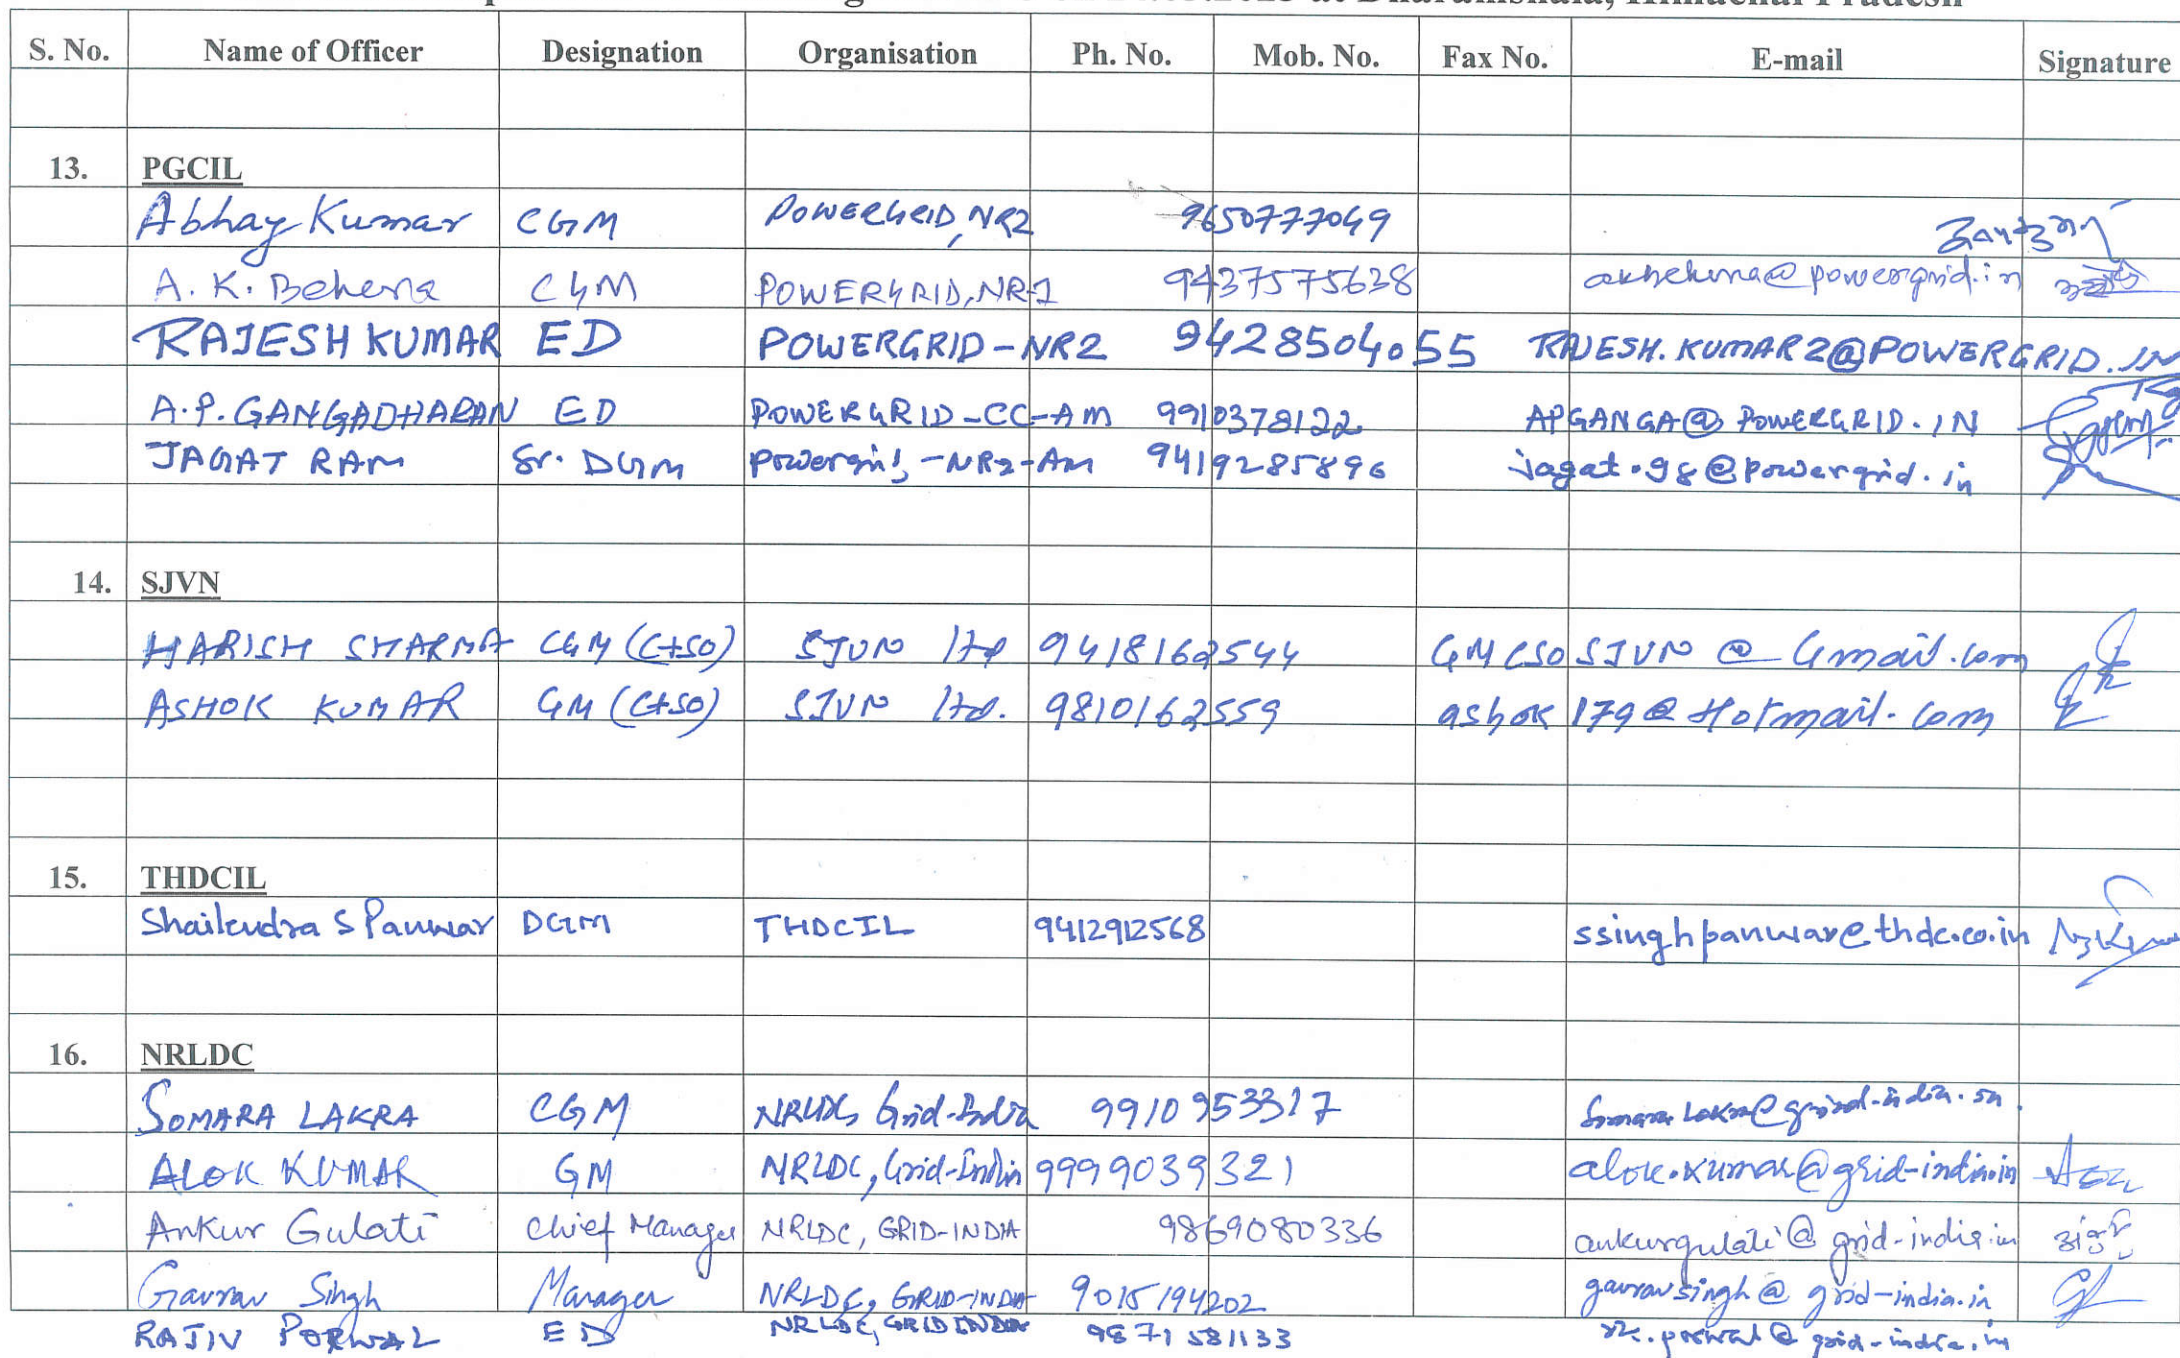 at Dharamshala, Himachal Pradesh
S. No. Name of Officer Designation Organisation Ph. No. Mob. No. Fax No. E-mail Signature
13. PGCIL
Abhay Kumar CGM POWERGRID, NR2 9650777049
A. K. Behera CGM POWERGRID, NR-1 9437575638 akbehera@powergrid.in
RAJESH KUMAR ED POWERGRID-NR2 9428504055 RAJESH.KUMAR2@POWERGRID.IN
A.P. GANGADHARAN ED POWERGRID-CC-AM 9910378122 APGANGA@POWERGRID.IN
JAGAT RAM Sr. DGM Powergrid, -NR2-AM 9419285896 jagat.98@powergrid.in
14. SJVN
HARISH SHARMA CGM (C+SO) SJVN ltd 9418162544 GMCSOSJVN@Gmail.com
ASHOK KUMAR GM (C+SO) SJVN ltd. 9810162559 ashok179@Hotmail.com
15. THDCIL
Shailendra S Panwar DGM THDCIL 9412912568 ssinghpanwar@thdc.co.in
16. NRLDC
SOMARA LAKRA CGM NRLDC, Grid-India 9910953317
ALOK KUMAR GM NRLDC, Grid-India 9999039321 alok.kumar@grid-india.in
Ankur Gulati Chief Manager NRLDC, GRID-INDIA 9869080336 ankurgulati@grid-india.in
Gaurav Singh Manager NRLDC, GRID-INDIA 9015194202 gauravsingh@grid-india.in
RAJIV PORWAL ED NRLDC, GRID INDIA 9871581133 rk.porwal@grid-india.in